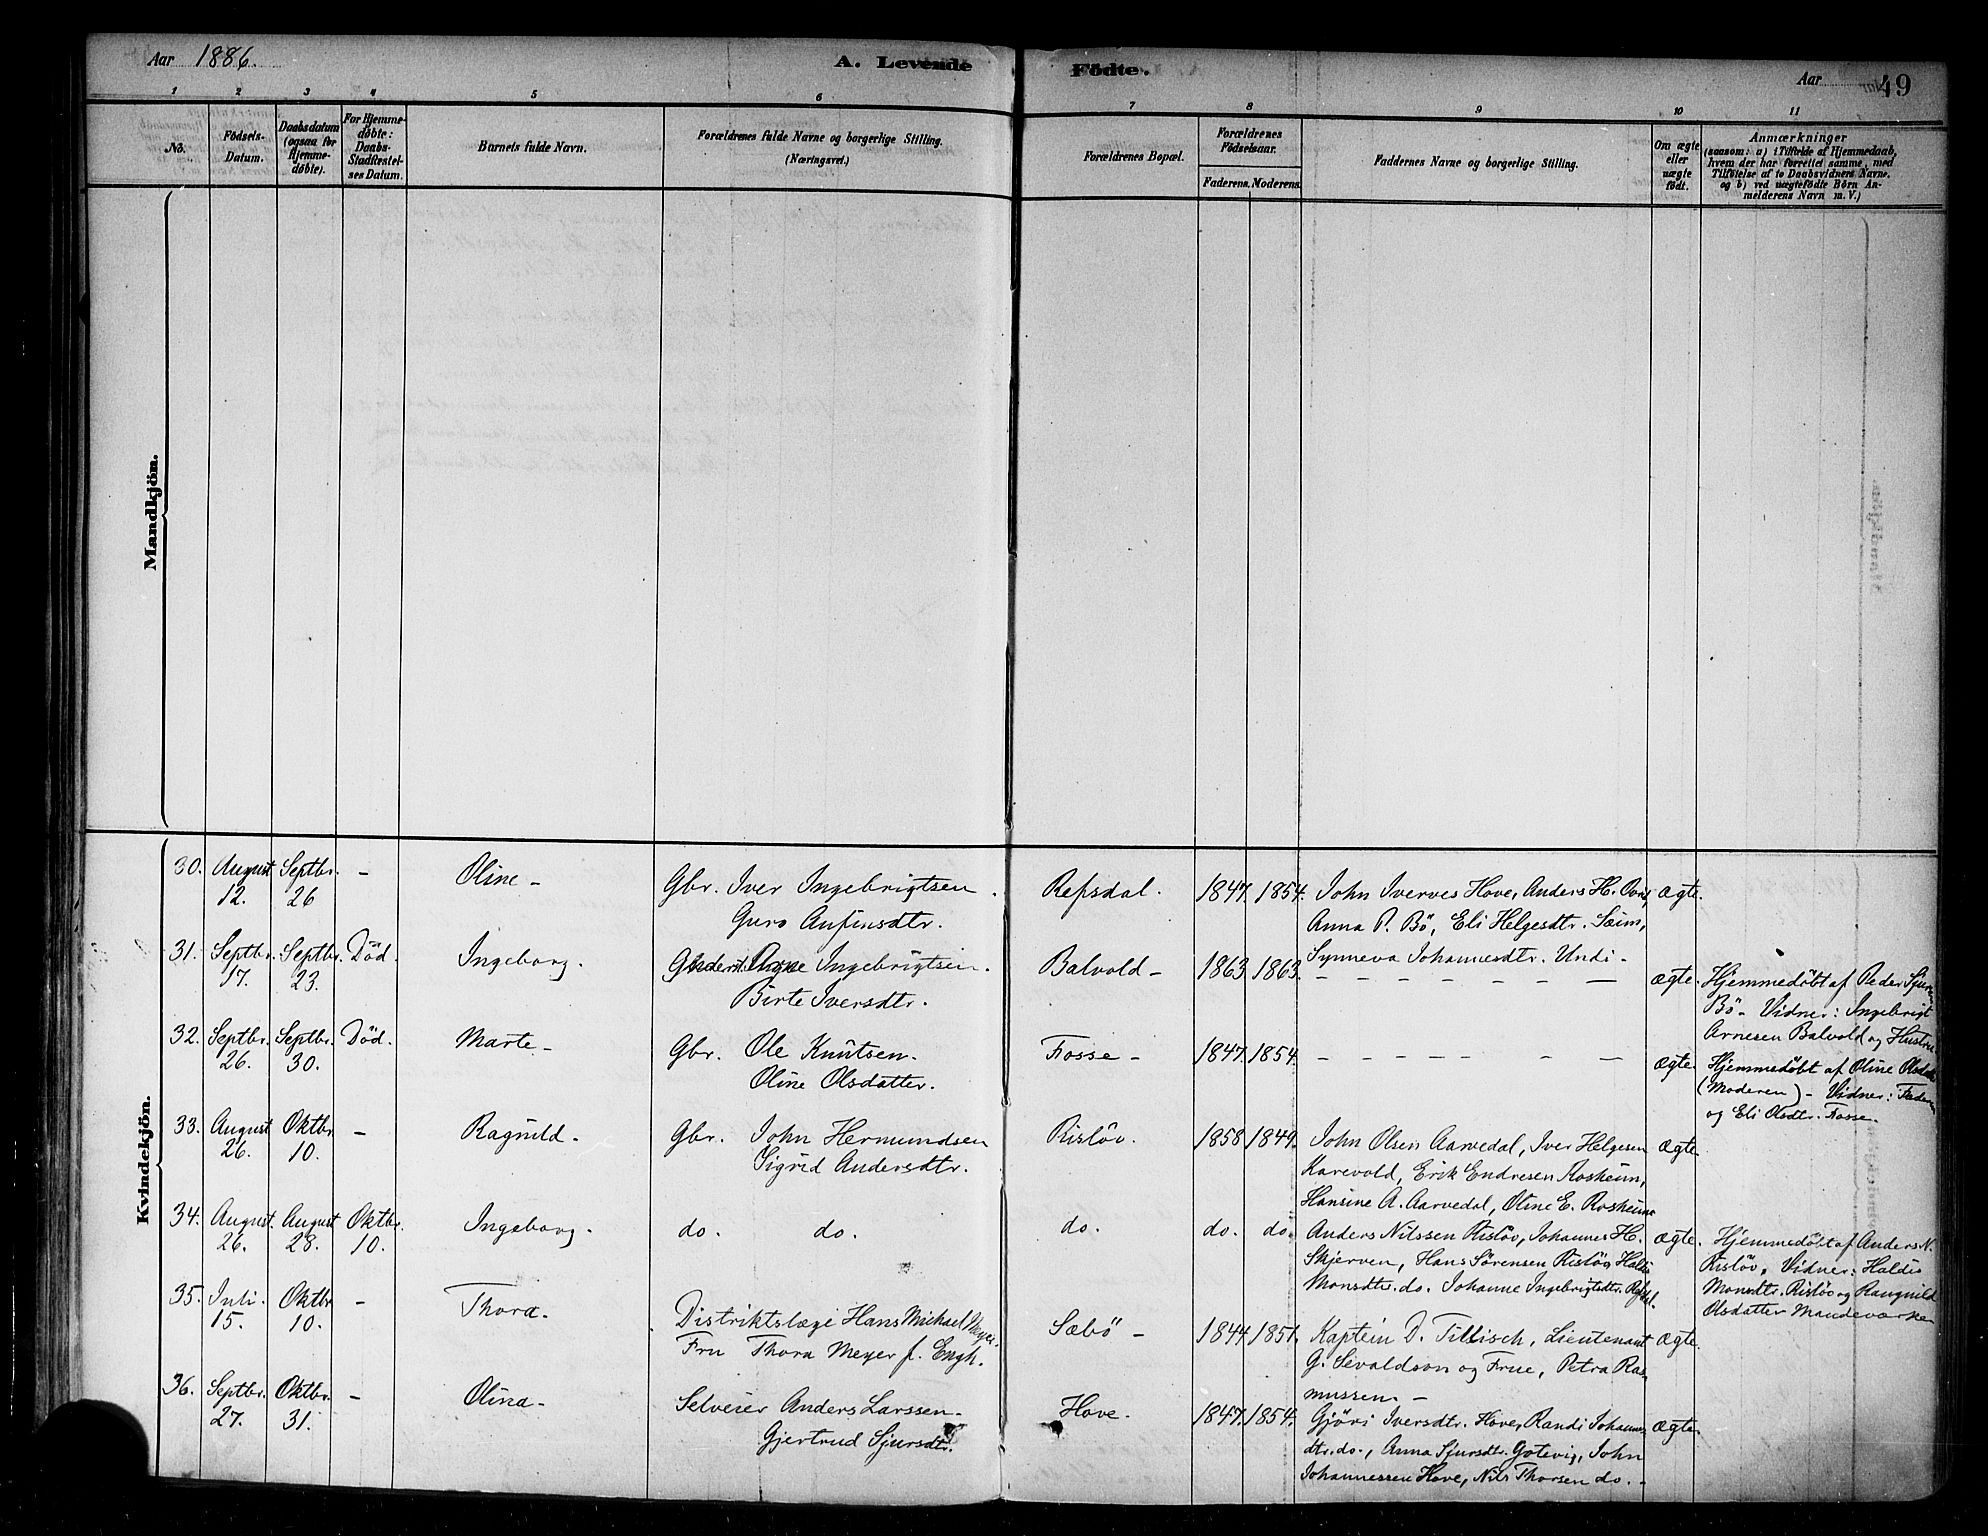 Aar 1886.
A. Levende Födte.
Aar
49
1 2 3 4 5 6 7 8 9 10 11
No.
Födsels-Datum.
Daabsdatum (ogsaa for Hjemme-döbte).
For Hjemme-döbte: Daabs-Stadfæstel-ses Datum.
Barnets fulde Navn.
Forældrenes fulde Navne og borgerlige Stilling. (Næringsvei.)
Forældrenes Bopæl.
Forældrenes Födselsaar.
Faderens. Moderens.
Faddernes Navne og borgerlige Stilling.
Om ægte eller uægte födt.
Anmærkninger
(saasom: a) i Tilfælde af Hjemmedaab,
hvem der har forrettet samme, med
Tilföielse af to Daabsvidners Navne,
og b) ved uægtefödte Börn An-
melderens Navn m. V.)
Mandkjön.
Kvindekjön.
30. August 12. Septbr. 26 - Oline - Gbr. Iver Ingebrigtsen Guro Anfinsdtr. Refsdal. 1847. 1854. John Iverses Hove, Anders H.
Anna P. Bö, Eli Helgesdtr. Seim,
Synneva Johannesdtr. Undi - ægte.
31. Septbr. 17. Septbr. 23. Död. Ingeborg. Arne Ingebrigtsen. Birte Iversdtr. Balvold - 1863 1863. - - - - - - ægte. Hjemmedöbt af Peder
Bö. Vidner: Ingebrigt
Arnesen Balvold og Hustru
32. Septbr. 26. Septbr. 30. Död. Marte - Gbr. Ole Knutsen. Oline Olsdatter. Fosse - 1847. 1854. - - - - - - ægte. Hjemmedöbt af Oline
(Moderen) - Vidner:
og Eli Olsdtr. Fosse.
33. August 26. Oktbr. 10. - Ragnild. Gbr. John Hermundsen Sigrid Andersdtr. Rislöv. 1858 1849. John Olsen Aarvedal, Iver Helgesen
Karevold, Erik Endresen Rosheim,
Hansine A. Aarvedal, Oline E. Rosheim ægte.
34. August 26. August 28. Oktbr. 10. Ingeborg. do. do. do. do. do. Anders Nilssen Rislöv, Johannes H.
Skjerven, Hans Sörensen Rislöv, Haldis
Monsdtr. do. Johanne Ingebrigtsdtr. ægte. Hjemmedöbt af Anders N.
Rislöv, Vidner: Haldis
Monsdtr. Rislöv og Raugnild
Olsdatter
35. Juli. 15. Oktbr 10. - Thora. Distriktslæge Hans Michael Meyer. Fru Thora Meyer f. Engh. Sæbö - 1844 1851. Kaptein D. Tillisch, Lieutenant
G. Sevaldson og Frue, Petra Ras
mussen. - ægte.
36. Septbr. 27. Oktbr. 31. - Olina - Selveier Anders Larssen. Gjertrud Sjursdtr. Hove. 1847. 1854. Gjöri Iversdtr. Hove, Randi Johannes
dtr. do., Anna Sjursdtr. Gotevig, John
Johannessen Hove, Nils Thorsen do. - ægte.